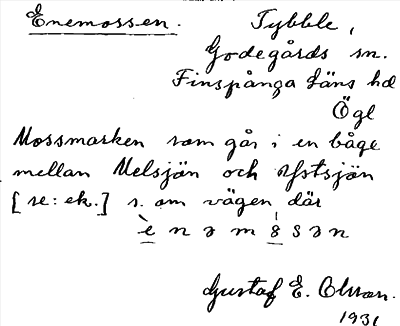 Enemossen. Tybble,
Godegårds sn.
Finspånga läns hd
Ögl
Mossmarken som går i en båge
mellan Melsjön och Ästsjön
[se: ek.] s. om vägen där
è n ə m ɞ s ə n
Gustaf E. Olsson.
1931